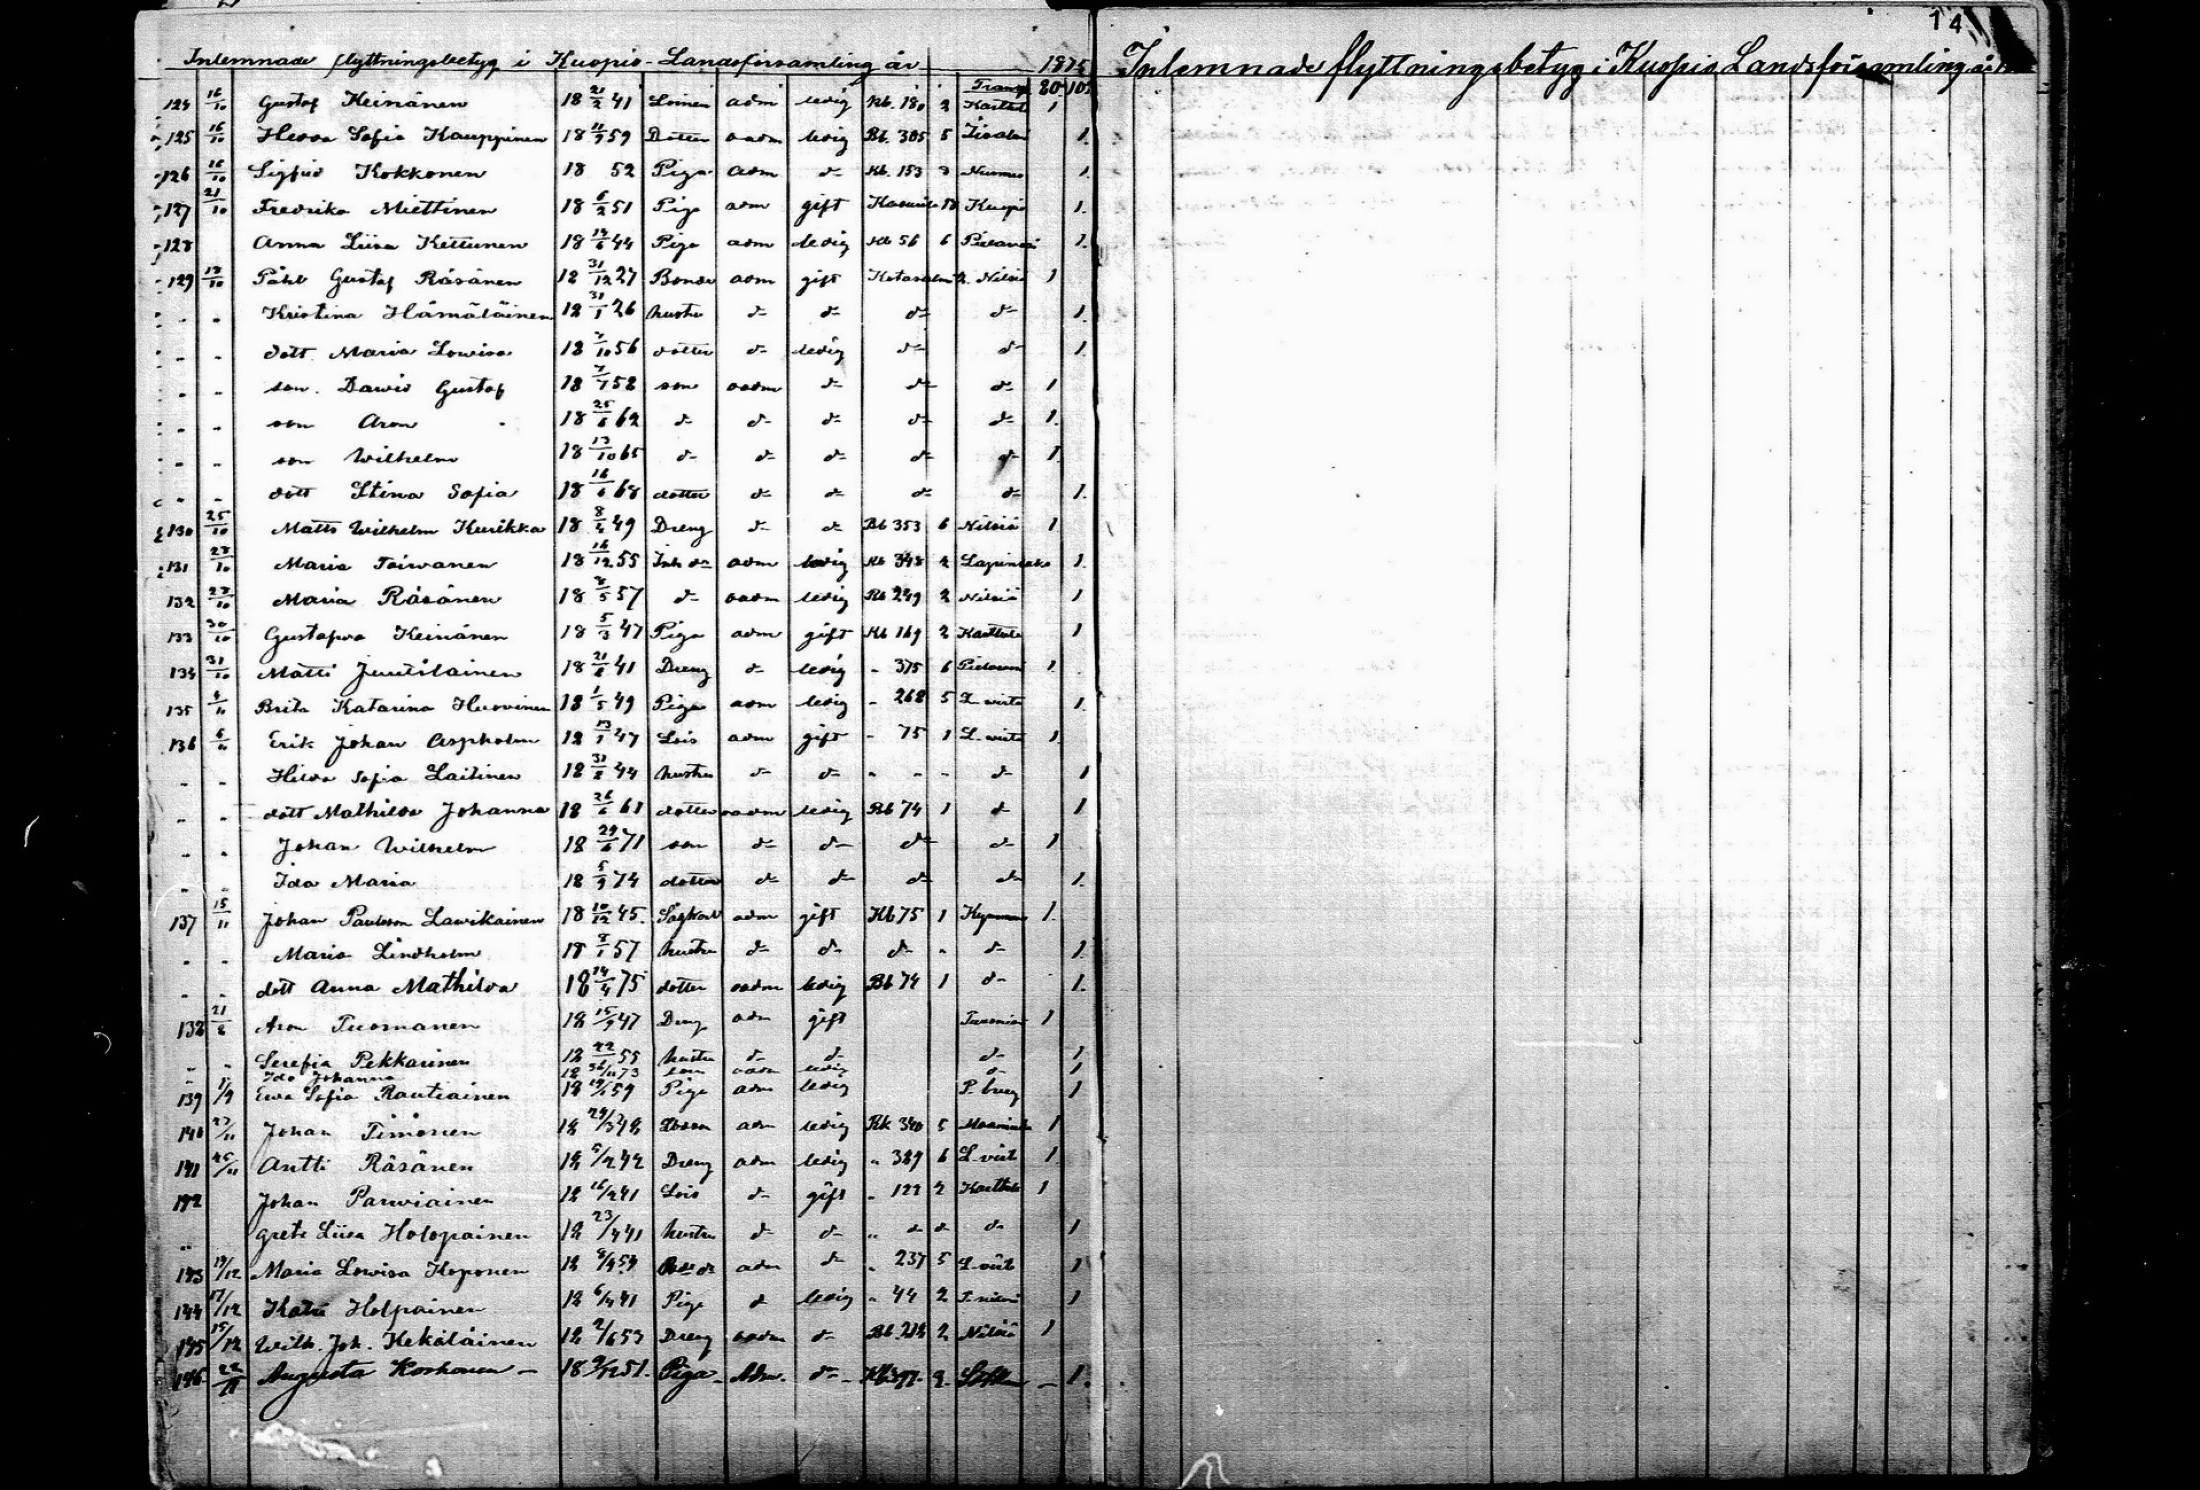 Inlemnade flyttningsbetyg i Kuopio-Landsförsamling år 1875
Transp. 80 10
124 16/10 Gustaf Keinänen 18 21/2 41 adm ledig Kb. 180 2 Karttula 1
125 16/10 Sofia Kauppinen 18 59 Dotter oadm ledig Bb. 305 5 Iisalmi 1.
126 16/10 Sigfrid Kokkonen 18 52 Piga adm d:o Kb. 153 3 1.
127 21/10 Fredrika Miettinen 18 6/2 51 Piga adm gift Kuopio 1.
128 Anna Liisa Kettunen 18 44 Piga adm ledig Kb 56 6 1.
129 Påhl Gustaf Räsänen 18 31/12 27 Bonde adm gift Kotasalmi 2. Nilsiä 1
" " Kristina Hämäläinen 18 31/1 26 hustru d:o d:o d:o d:o 1.
" " dott. Maria Lowisa 18 7/10 56 dotter d:o ledig d:o d:o 1.
" " son. Dawid Gustaf 18 7/7 58 son oadm d:o d:o d:o 1
" " son Aron 18 25/6 62 d:o d:o d:o d:o d:o 1.
" " son Wilhelm 18 13/10 65 d:o d:o d:o d:o d:o 1.
" " dott Stina Sofia 18 16/6 68 dotter d:o d:o d:o d:o 1.
130 25/10 Matts Wilhelm Kurikka 18 8/4 49 Dreng d:o d:o Bb 353 6 Nilsiä 1
131 Maria Toiwanen 18 16/12 55 Inh dr adm ledig Kb 348 2 Lapinlaks 1.
132 Maria Räsänen 18 8/5 57 d:o oadm ledig Rb 249 2 Nilsiä 1
133 30/10 Gustafwa Keinänen 18 5/3 47 Piga adm gift Kb 169 2 Karttula 1
134 31/10 Matti Juutilainen 18 21/8 41 Dreng d:o ledig " 375 6 Pielavesi 1.
135 4/11 Brita Katarina Huovinen 18 1/5 49 Piga adm ledig " 268 5 L-wirta 1.
136 6/11 Erik Johan Aspholm 18 13/1 47 Lois adm gift " 75 1 L-wirta 1.
" " Hilda Sofia Laitinen 18 44 hustru d:o d:o " " " d:o 1
" " dott Mathilda Johanna 18 26/6 61 dotter oadm ledig Bb 74 1 d:o 1
" " Johan Wilhelm 18 29/6 71 son d:o d:o d:o d:o 1
" " Ida Maria 18 5/9 74 dotter d:o d:o d:o d:o 1.
137 15/11 Johan Paulsson Lawikainen 18 10/12 45. adm gift Kb 75 1 1.
" " Maria Lindholm 18 8/1 57 hustru d:o d:o d:o " d:o 1.
" " dott Anna Mathilda 18 14/4 75 dotter oadm ledig Bb 74 1 d:o 1.
138 Aron Tuomanen 18 15/9 47 Dreng adm gift 1
" " Serefia Pekkarinen 18 55 hustru d:o d:o d:o 1
" " Ida Johanna 18 73 oadm ledig d:o 1
139 1/9 Ewa Sofia Rautiainen 18 59 Piga adm ledig P. burg 1
140 27/11 Johan Timonen 18 29/3 48 adm ledig Kb 340 5 Maaninka 1
141 Antti Räsänen 18 5/2 42 Dreng adm ledig " 389 6 L-virt 1.
142 Johan Parwiainen 18 16/2 41 Lois d:o gift " 122 2 Karttula 1
" Greta Liisa Holopainen 18 23/4 41 hustru d:o d:o " d:o d:o d:o 1
143 19/12 Maria Lowisa Koponen 18 adm d:o " 237 5 L-virt 1
144 17/12 Kati Holpainen 18 6/4 41 Piga d:o ledig " 44 2 1
145 15/12 Wilh. Joh. Kekäläinen 18 2/6 53 Dreng oadm d:o Bb. 218 2 Nilsiä 1
146. 22/11 Augusta Korhonen – 18 51. Piga – Adm. d:o – Kb 397. 2. – 1.
14
Inlemnade flyttningsbetyg i Kuopio Landsförsamling år